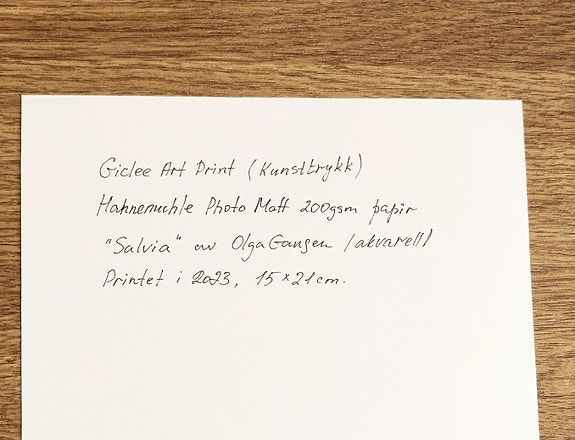 Giclee Art Print (Kunsttrykk)
Hahnemuhle Photo Matt 200gsm papir
"Salvia" av Olga Gansen /akvarell/
Printet i 2023, 15×21cm.